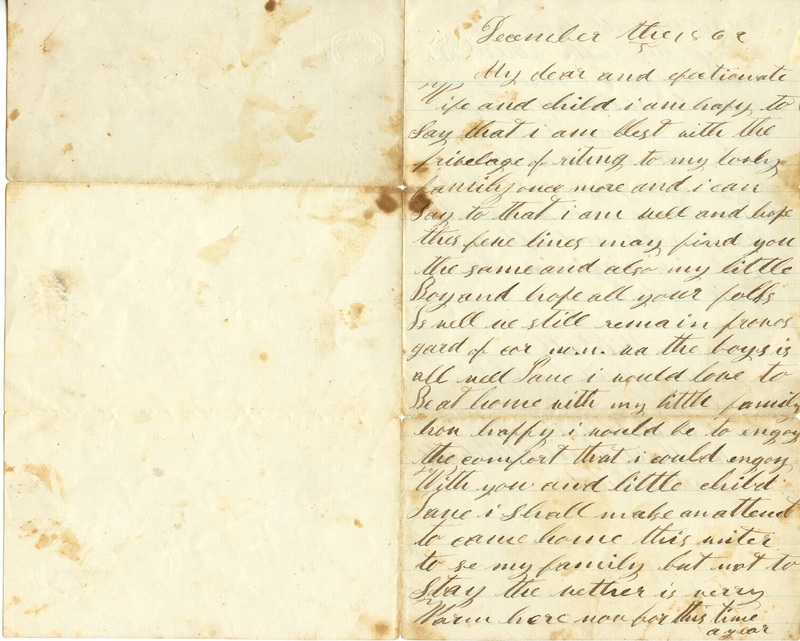 December the 15 62
My dear and efectionate
Wife and child i am hapy to
Say that i am blest with the
privelage of riting to my lovly
family once more and i can
Say to that i am well and hope
thes fewe lines may find you
the same and also my little
Boy and hope all your folks
Is well we still remain provos
gard of
the boys is
all well Jane i would love to
Be at home with my little family
how happy i would be to engoy
the comfort that i could engoy
With you and little child
Jane i shall make an attend
to came home this winter
to se my family but not to
Stay the wether is verry
Warm here now for this time
a year